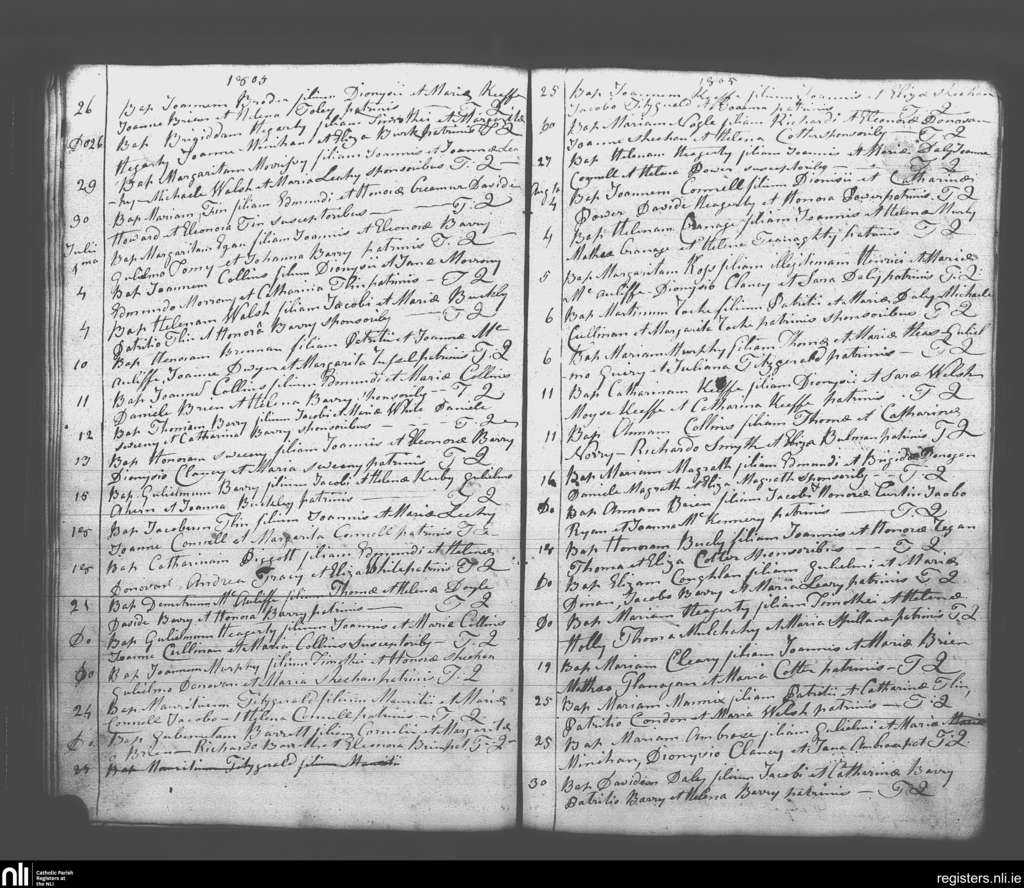 1805
26 Bap Joannem Broder filium Dionysii et Mariæ Keeffe
Joanne Brien et Helena Foley patrinis T. Q
Do 26 Bap Brigiddam Hegerty filiam Timothei et Margaritæ
Hegerty Joanne Minihan et Eliza Burk patrinis T Q
29 Bap Margaritam Morrissy filiam Joannis et Joannæ Lea
hy Michaele Walsh et Maria Leahy sponsoribus T. Q
30 Bap Mariam Flin filiam Edmundi et Honoræ Creamer Davide
Howard et Eleonora Flin susceptoribus T. Q
Julii 1ma Bap Margaritam Egan filiam Joannis et Eleonoræ Barry
Gulielmo et Johanna Barry patrinis T. Q
4 Bap Joannem Collins filium Dionysii et Janæ Morrony
Edmundo Morrony et Catharina Flin patrinis T Q
4 Bap Helenam Walsh filiam Jacobi et Mariæ Buckly
Patritio Flin et Honora Barry sponsorib T Q
10 Bap Honoram Brennan filiam Patritii et Joannæ Mc
Auliffe, Joanne Dwyer et Margarita patrinis T. Q
11 Bap Joannem Collins filium Edmundi et Mariæ Collins
Daniele Brien et Helena Barry sponsorib T Q
12 Bap Thomam Barry filium Jacobi et Mariæ White Daniele
Sweeny et Catharina Barry sponsoribus T. Q
13 Bap Honoram Sweeny filiam Joannis et Eleonoræ Barry
Dionysio Clancy et Maria Sweeny patrinis T Q
15 Bap Gulielmum Barry filium Jacobi et Helenæ Kirby Gulielmo
Ahern et Joanna Buckley patrinis T. Q
18 Bap Jacobum Flin filium Joannis et Mariæ Leahy
Joanne Connell et Margarita Connell patrinis T Q
18 Bap Catharinam Piggott filiam Edmundi et Helenæ
Donovan Andrea Tracy et Eliza White patrinis T Q
21 Bap Demetrium Mc Auliffe filium Thomæ et Helenæ Doyle
Davide Barry et Honora Barry patrinis T Q
Do Bap Gulielmum Heagerty filium Joannis et Mariæ Collins
Joanne Cullman et Maria Collins Susceptorib T. Q
Do Bap Joannem Murphy filium Timothei et Honoræ Sheehan
Gulielmo Donovan et Maria Sheehan patrinis T. Q
24 Bap Mauritium Fitzgerald filium Mauritii et Mariæ
Connell Jacobo et Helena Connell patrinis T Q
Do Bap Gulielmum Barrett filium Cornelii et Margaritæ
Brien Richardo Barrett et Eleonora Brien pat T. Q
25 Bap Mauritium Fitzgerald filium Mauritii
1805
25 Bap Joannem Keeffe filium Joannis et Elizæ Sheehan
Jacobo Fitzgerald et Joanna patrinis T Q
Do Bap Mariam Nagle filiam Richardi et Eleonoræ Donovan
Joanne Sheehan et Helena Cotter sponsorib T. Q
27 Bap Helenam Heagerty filiam Joannis et Mariæ Daly Joanne
Connell et Helena Power susceptorib T Q
Aug 4 Bap Joannem Connell filium Dionisii et Catharinæ
Power Davide Heagerty et Honora Power patrinis T. Q
4 Bap Helenam Cranage filiam Joannis et Helenæ
Mathæo Cranage et Helena patrinis T Q
5 Bap Margaritam Ross filiam illigitimam Henrici et Mariæ
Mc Auliffe Dionysio Clancy et Sara Daly patrinis T. Q
6 Bap Martinum Yorke filium Patritii et Mariæ Daly Michaele
Cullman et Margarita Yorke patrinis sponsoribus T. Q
6 Bap Mariam Murphy filiam Thomæ et Mariæ Heas Guliel
mo Guiry et Juliana Fitzgerald patrinis T. Q
11 Bap Catharinam Keeffe filiam Dionysii et Saræ Welsh
Moyse Keeffe et Catharina Keeffe patrinis T. Q
11 Bap Annam Collins filiam Thomæ et Catharinæ
Norry Richardo Smyth et Eliza Bulman patrinis T Q
16 Bap Mariam Magrath filiam Edmundi et Brigidæ Donegan
Daniele Magrath et Eliza Magrath sponsorib T. Q
Do Bap Annam Brien filiam Jacobi et Honoræ Curtin Jacobo
Ryan et Joanna Mc Kennery patrinis T. Q
18 Bap Honoram Buckly filiam Joannis et Honoræ Regan
Thoma et Eliza Cotter sponsoribus T. Q
Do Bap Elizam Coughlan filiam Gulielmi et Mariæ
Donan, Jacobo Barry et Maria Leary patrinis T. Q
Do Bap Mariam Heagerty filiam Timothei et Helenæ
Holly Thoma Mulchahy et Maria Spillane patrinis T. Q
19 Bap Mariam Cleary filiam Joannis et Mariæ Brien
Mattheo Flanagan et Maria Cotter patrinis T. Q
25 Bap Mariam Mannix filiam Patritii et Catharinæ Flin,
Patritio Condon et Maria Welsh patrinis T. Q
25 Bap Mariam Ambrose filiam Gulielmi et Mariæ
Minihan, Dionysio Clancy et Jana Ambrose pat T. Q
30 Bap Davidem Daly filium Jacobi et Catharinæ Barry
Patritio Barry et Helena Barry patrinis T Q
nli
Catholic Parish
Registers at
the NLI
registers.nli.ie